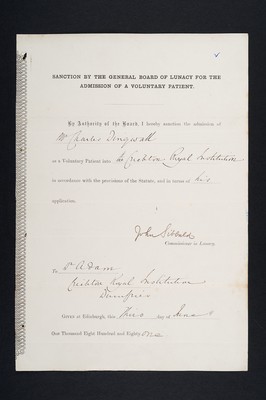 SANCTION BY THE GENERAL BOARD OF LUNACY FOR THE
ADMISSION OF A VOLUNTARY PATIENT.
By Authority of the Board, I hereby sanction the admission of
Mr Charles Dingwall
as a Voluntary Patient into the Crichton Royal Institution
in accordance with the provisions of the Statute, and in terms of his
application.
John Sibbald
Commissioner in Lunacy.
To Dr Adam
Crichton Royal Institution
Dumfries
Given at Edinburgh, this third day of June
One Thousand Eight Hundred and Eighty one